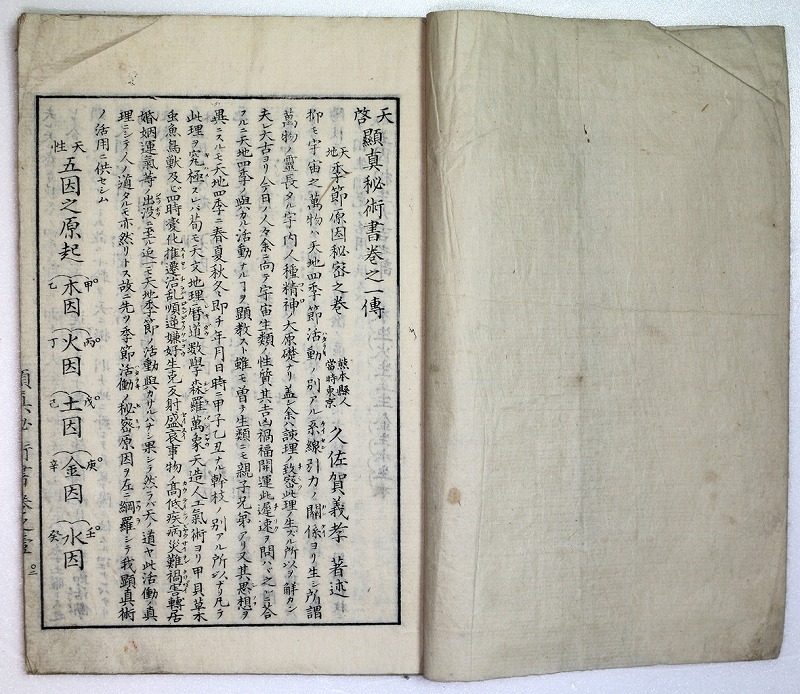 天啓 顯真秘術書巻之一傳
天地 季節原因秘密之巻
熊本縣人 當時東京 久佐賀義孝 著述
抑モ宇宙之萬物ハ天地四季節活動ノ別アル系線引力ノ關係ヨリ生シ所謂
萬物ノ靈長タル宇内ノ人種精神ノ大原礎ナリ蓋シ余ハ該理ノ致密此理ノ生スル所以ヲ解カン
夫レ大古ヨリ今日ノ人々余ニ向テ宇宙生類ノ性質其吉凶禍福開運此遲速ヲ問ハヾ之ニ答
フルニ天地四季ノ與カル活動ナルヿヲ顯教スト雖モ曽テ生類ニモ親子兄弟アリ又其思想ヲ
異ニスルモ天地四季ニ春夏秋冬即チ年月日時ニ甲子乙丑ナル幹枝ノ別アル所以ナリ凡テ
此理ヲ窮極スレバ苟モ天文地理ニ暦道数學森羅萬象天造人工氣術ヨリ甲貝草木
虫魚鳥獣及ビ四時変化推遷治乱順逆嫌好生克反射盛哀事物ノ高低疾病災難禍害轉居
婚姻運氣等ノ出没ニ至ル迠一モ天地季節ノ活動與カリルハナシ果シテ然ラバ天ノ道ヤ此活動ノ真
理ニシテ人ノ道タルモ亦然リトス故ニ先ヲ季節活働ノ秘密原因ヲ左ニ綱羅シテ我顯真術
ノ活用ニ供セシム
天性 五因之原起
甲乙 木因
丙丁 火因
戊己 土因
庚辛 金因
壬癸 水因
顯真秘術書巻之壹 二